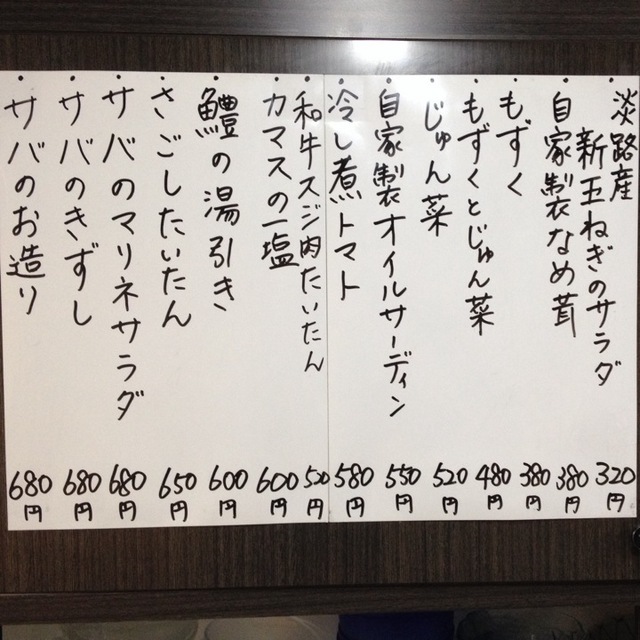 淡路産
新玉ねぎのサラダ 320円
自家製なめ茸 380円
もずく 380円
もずくとじゅん菜 480円
じゅん菜 520円
自家製オイルサーディン 550円
冷し煮トマト 580円
和牛スジ肉たいたん 520円
カマスの一塩 600円
鱧の湯引き 600円
さごしたいたん 650円
サバのマリネサラダ 680円
サバのきずし 680円
サバのお造り 680円